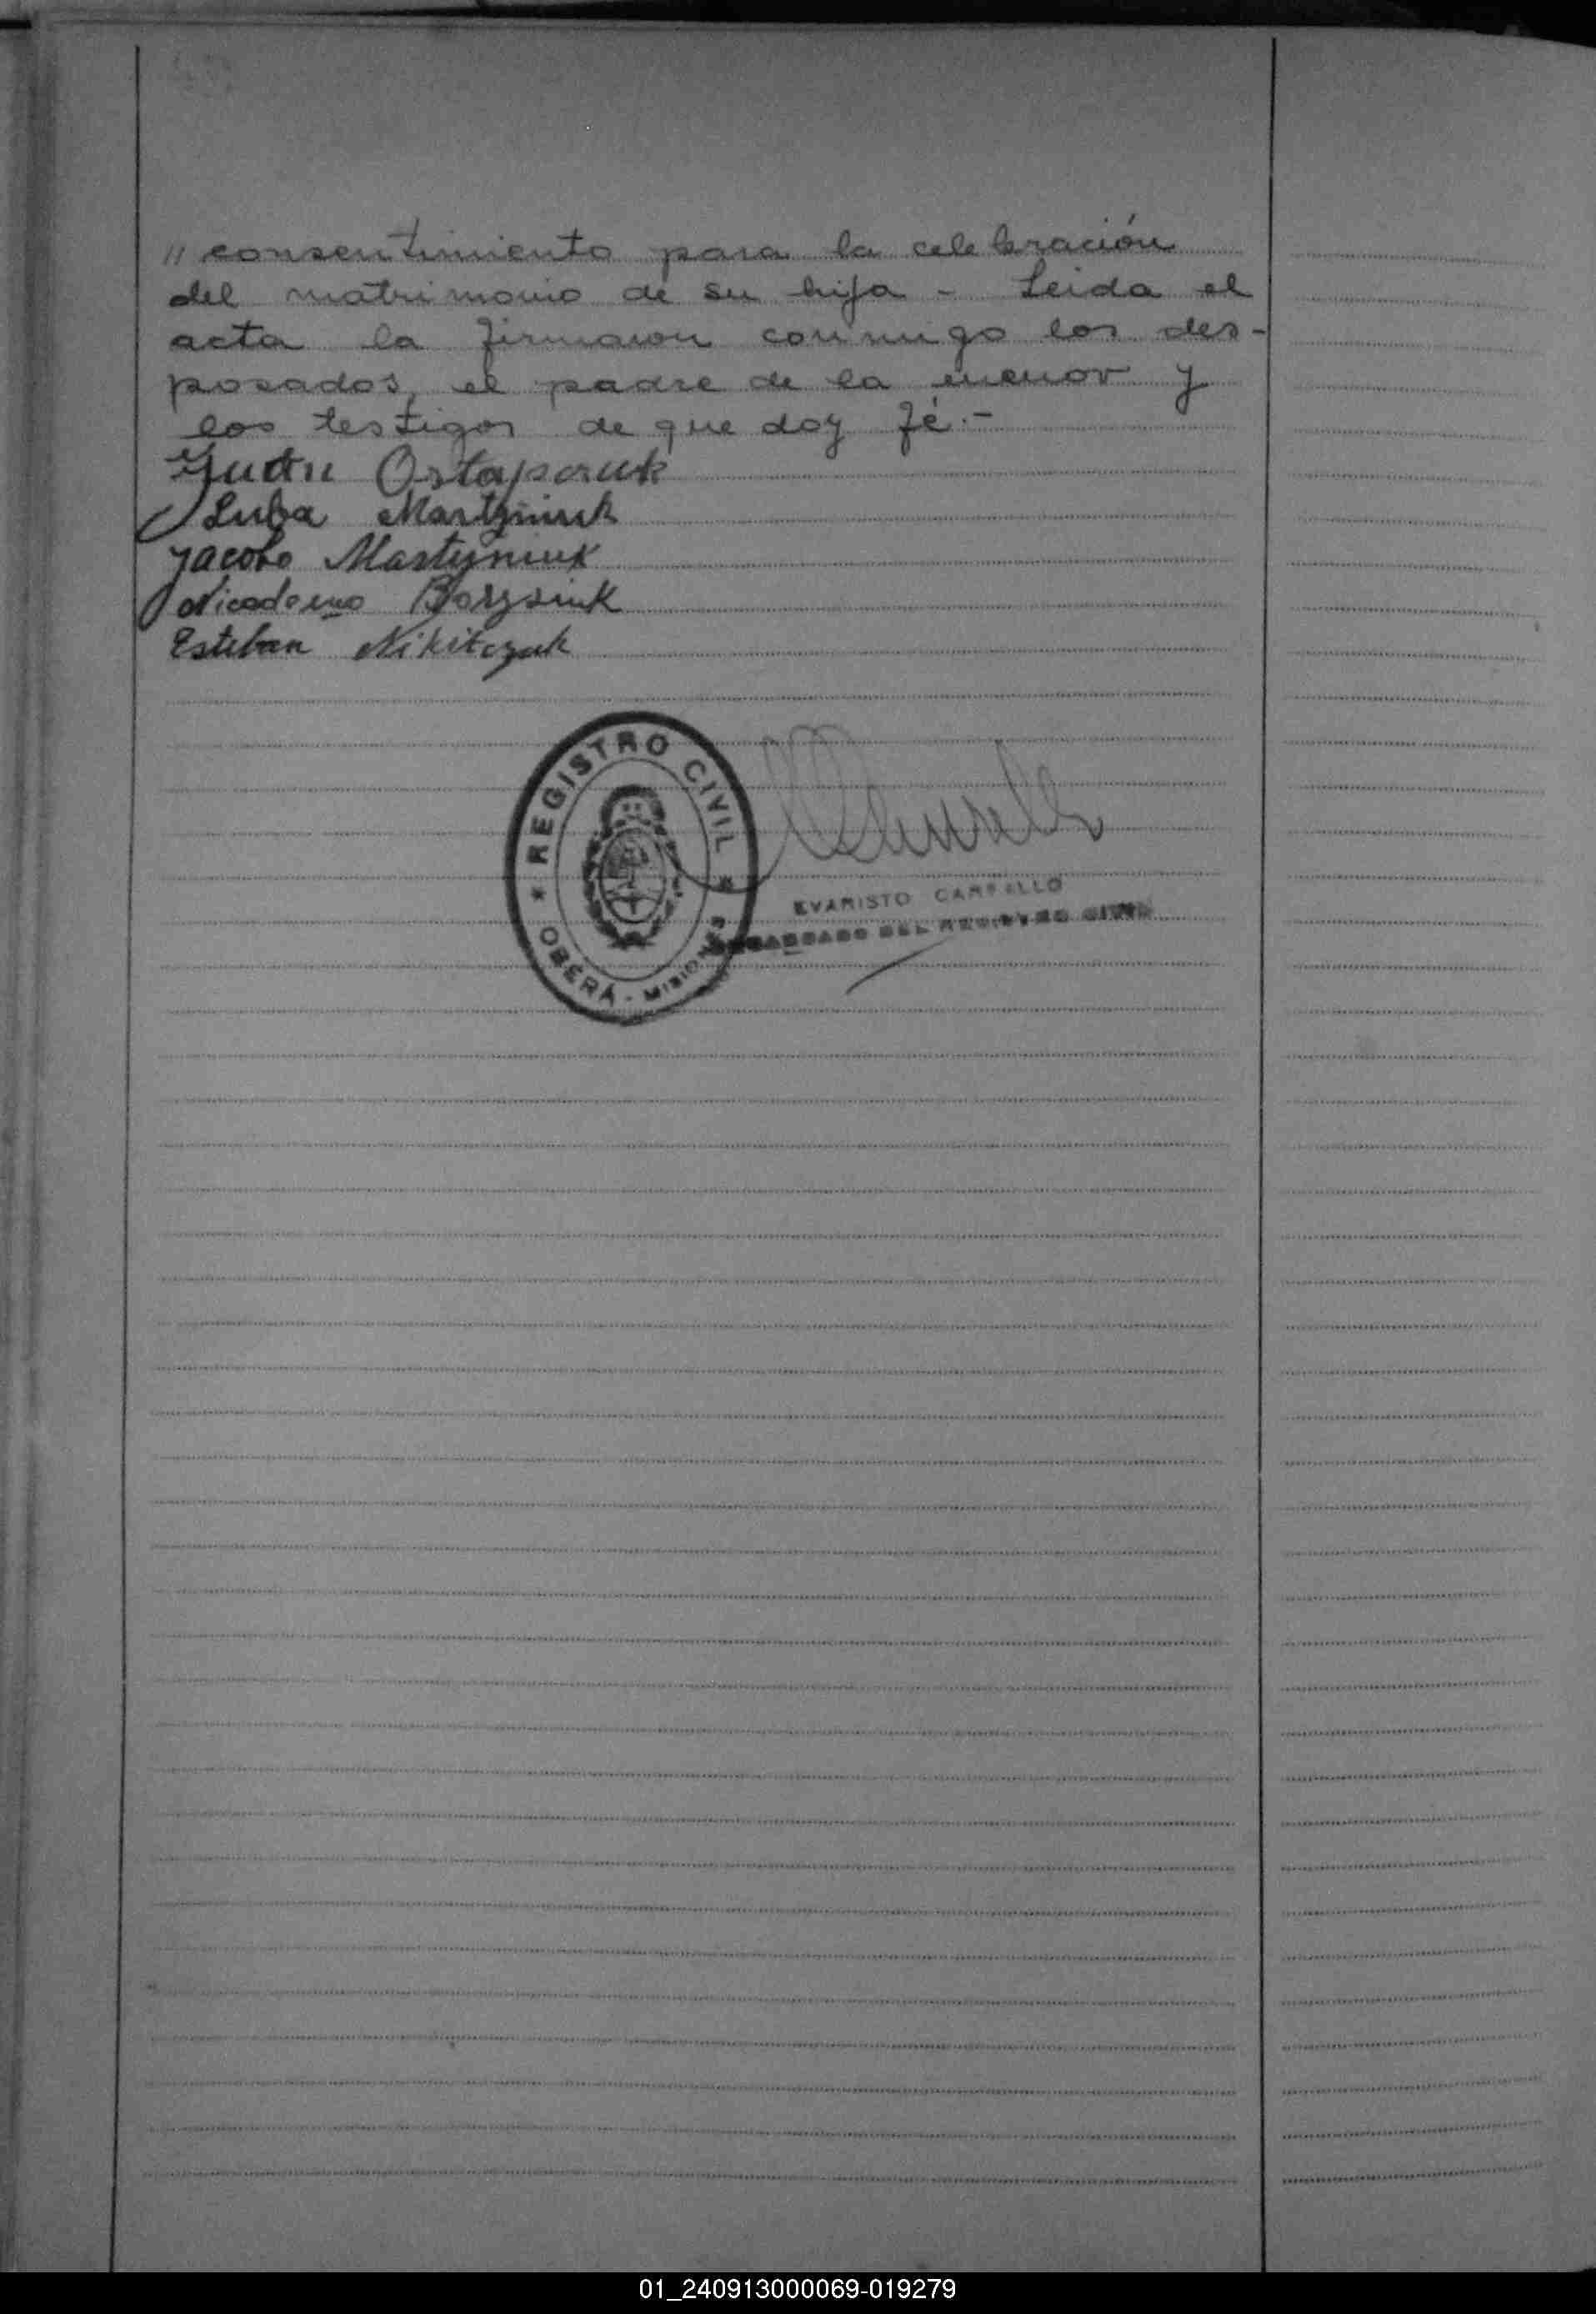 " consentimiento para la celebración
del matrimonio de su hija - Leida el
acta la firmaron conmigo los des-
posados, el padre de la menor y
los testigos de que doy fé.-
Ostapczuk
Luba Martyniuk
Jacobo Martyniuk
Nicodemo Borysiuk
Esteban Nikitczuk
* REGISTRO CIVIL *
OBERÁ - MISIONES
EVARISTO CAMPELLO
ENCARGADO DEL REGISTRO CIVIL
01_240913000069-019279